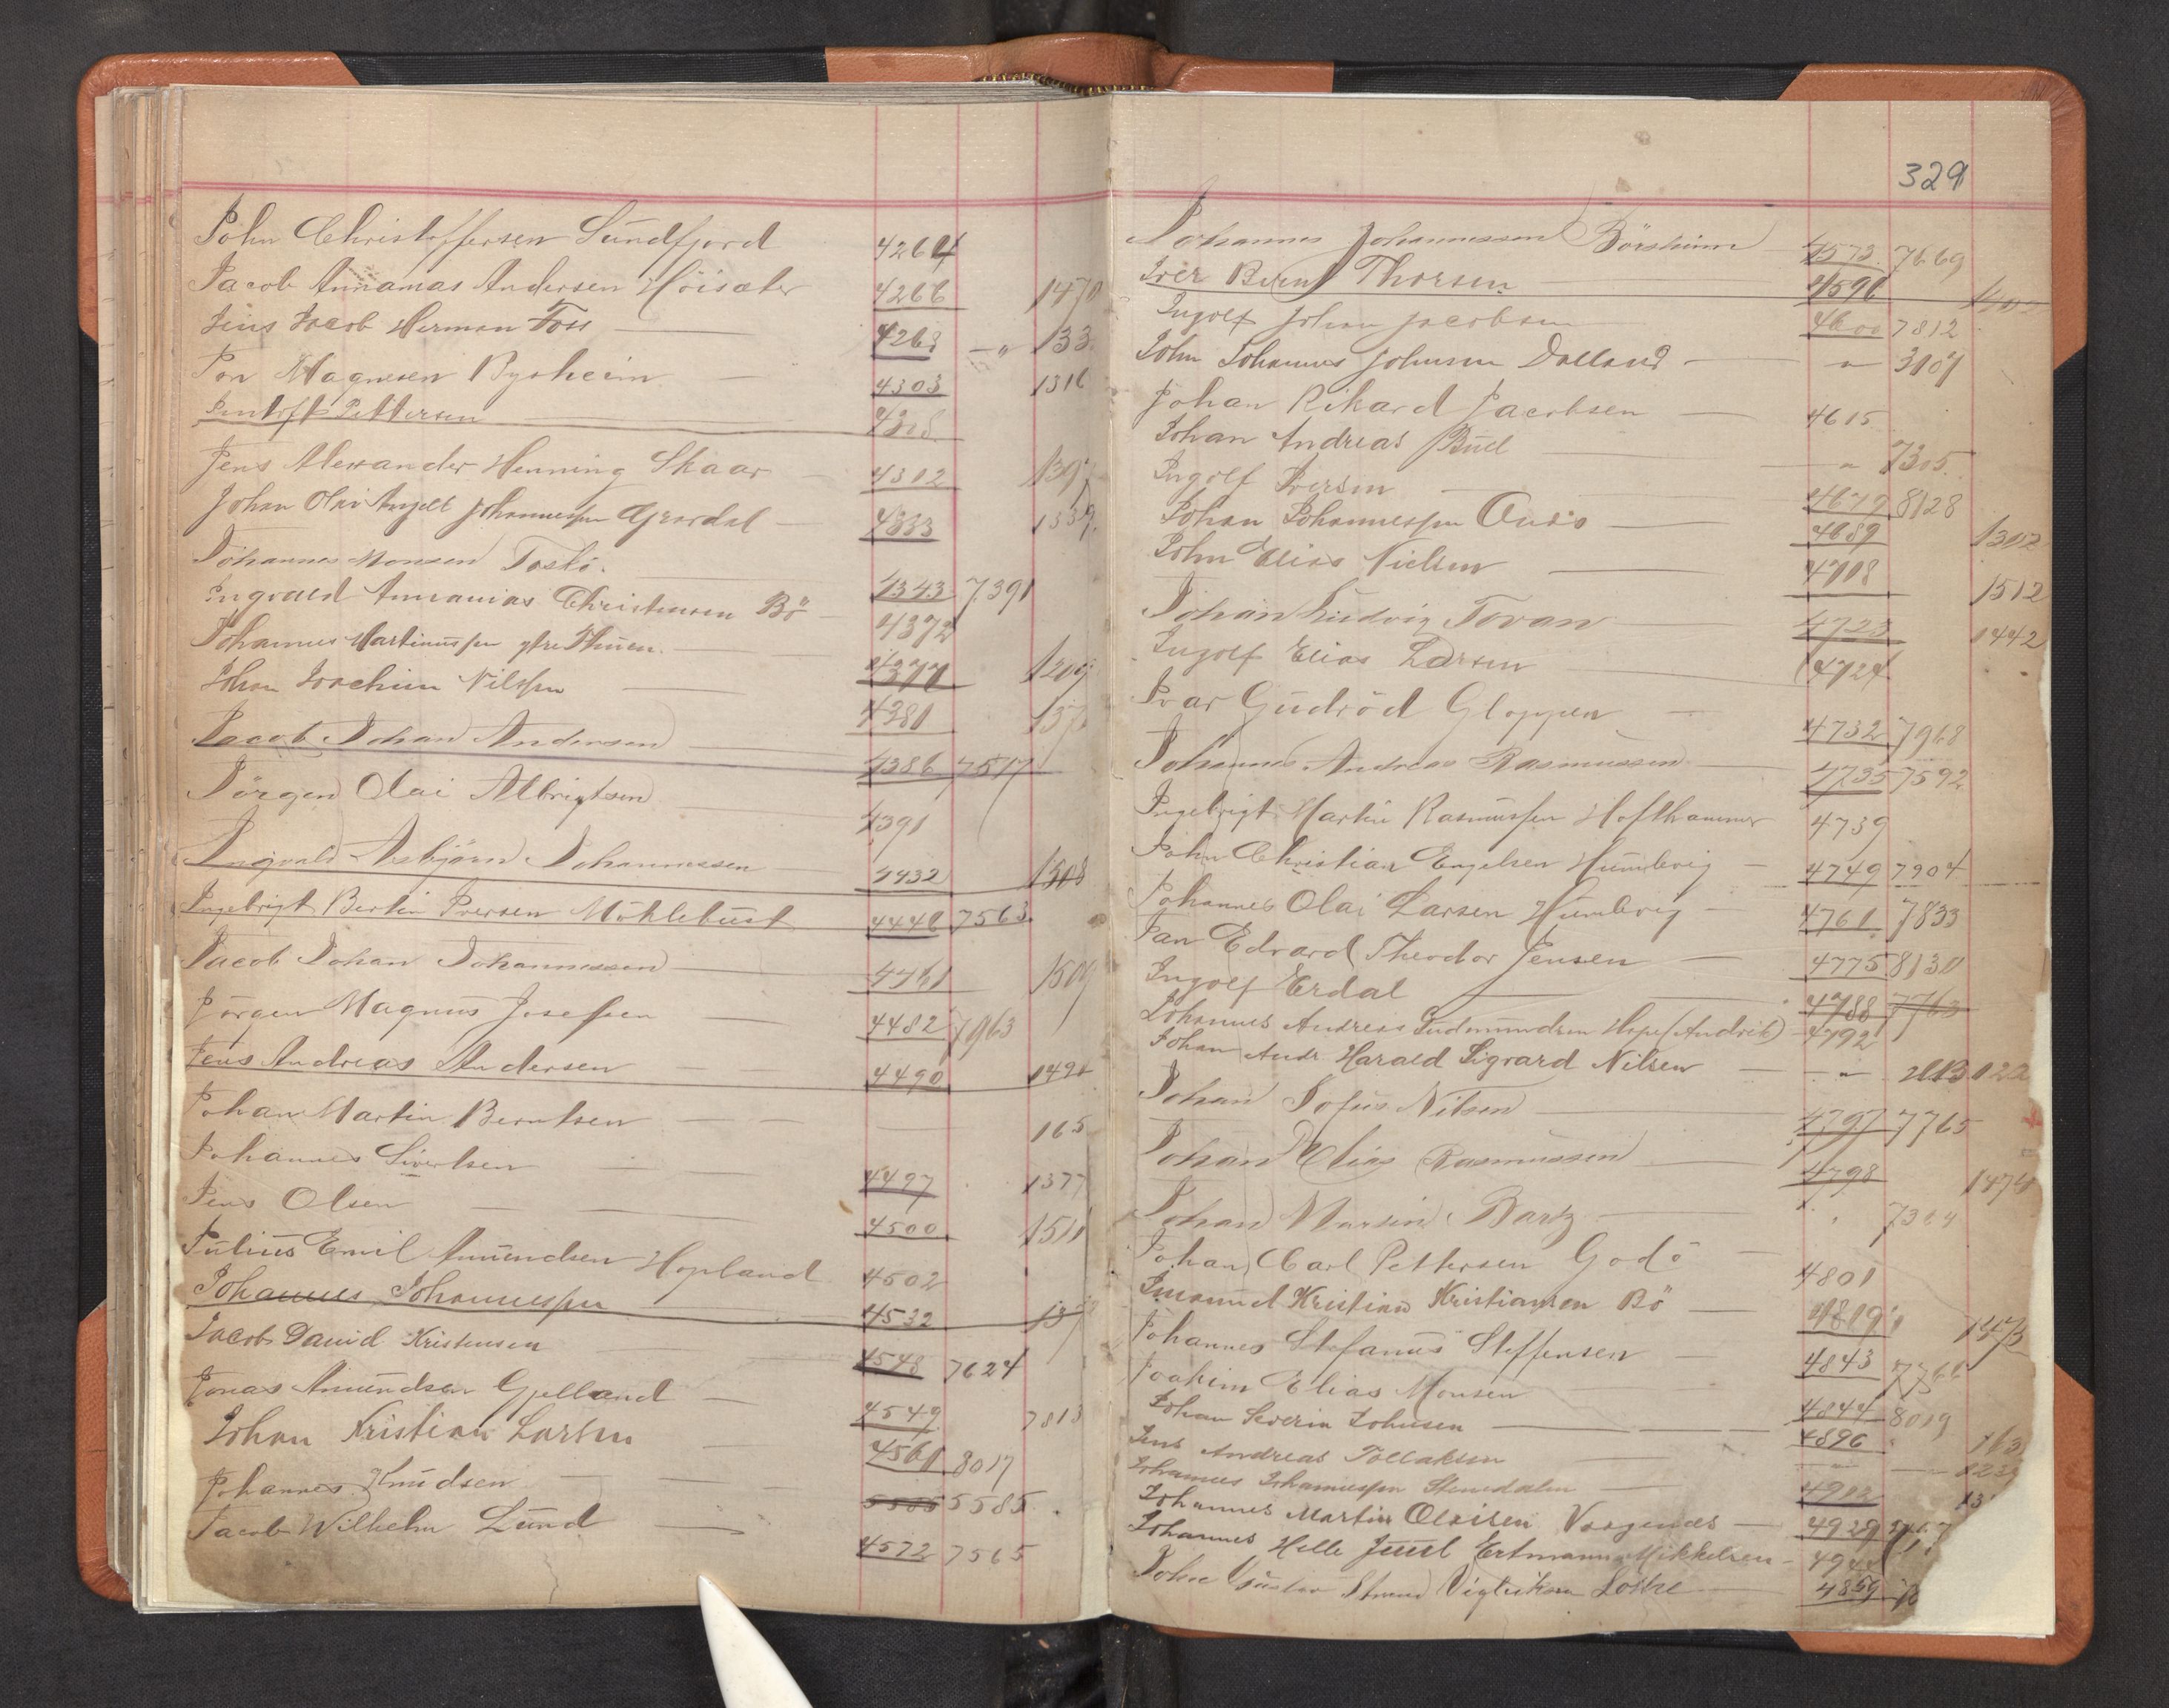 John Christoffersen Sundfjord 4264
Jacob Annanias Andersen Höisæter 4266 1470
Jens Jacob Herman Foss 4268 — " 133
Jon Magnesen Rysheim 4303 1316
Pettersen 4308
Jens Alexander Henning Skaar 4312 139
Johan Olai Angell Johannessen Gjerdal 4333 1339
Johannes Monsen Tosko 4343 7391
Ingvald Annanias Christensen Bö 4372
Johannes Martinussen ytre Thuen 4377 1209
Johan Joachim Nilssen 4381 137
Jacob Johan Andersen 4386 7517
Jörgen Olai Albrigtsen 4391
Ingvald Asbjörn Johannessen 4432 1508
Ingebrigt Bertin Iversen Möklebust 4446 7563
Jacob Johan Johannessen 4461 1509
Jörgen Magnus Josefsen 4482 7963
Jens Andreas Andersen 4490 1491
Johan Martin Berntsen — 165
Johannes Sivertsen 4497 1377
Jens Olsen 4500 1511
Julius Emil Amundsen Hopland 4502
Johannes Johannessen 4532
Jacob David Kristensen 4548 7624
Jonas Amundsen Gjelland 4549 7813
Johan Kristian Larsen 4561 8017
Johannes Knudsen 5585 5585
Jacob Wilhelm Lund 4572 7565
329
Johannes Johannessen Börsheim 4573 7669
Iver Bernt Thorsen 4596
Ingolf Johan Jacobsen 4600 7812
John Johannes Johnsen Dalland — " 3107
Johan Rikard Jacobsen — 4615
Johan Andreas Buel — " 7305
Ingolf Iversen — 4679 8128
Johan Johannessen — 4689 1302
John Elias Nielsen — 4708 1512
Johan Ludvig Tovan 4723 1442
Ingolf Elias Larsen 4724
Ivar Gudröd Gloppen — 4732 7968
Johannes Andreas Rasmussen — 4735 7592
Ingebrigt Martin Rasmussen Hofthammer 4739
John Christian Engelsen Humlevig — 4749 7904
Johannes Olai Larsen Humlevig — 4761 7833
Jan Edvard Theodor Jensen — 4775 8130
Ingolf Erdal — 4788 7763
Johannes Andreas Gudmundsen Hope (Andrik) — 4792
Johan Andr Harald Sigvard Nilsen — "
Johan Sofus Nilsen — 4797 7765
Johan Elias Rasmussen — 4798 1474
Johan Martin Bartz — 7304
Johan Carl Pettersen Godö — 4801
Imanuel Kristian Kristiansen Bö — 4819 1473
Johannes Stefanus Steffensen — 4843
Joakim Elias Monsen — 4844 8019
Johan Severin Johnsen — 4896 163
Jens Andreas Tollaksen — " —
Johannes Johannessen Stenedalen — 4902
Johannes Martin Olaisen Vaagenæs — 4929
Johannes Helle Juul Ertmann Mikkelsen —
John Gustav 4859